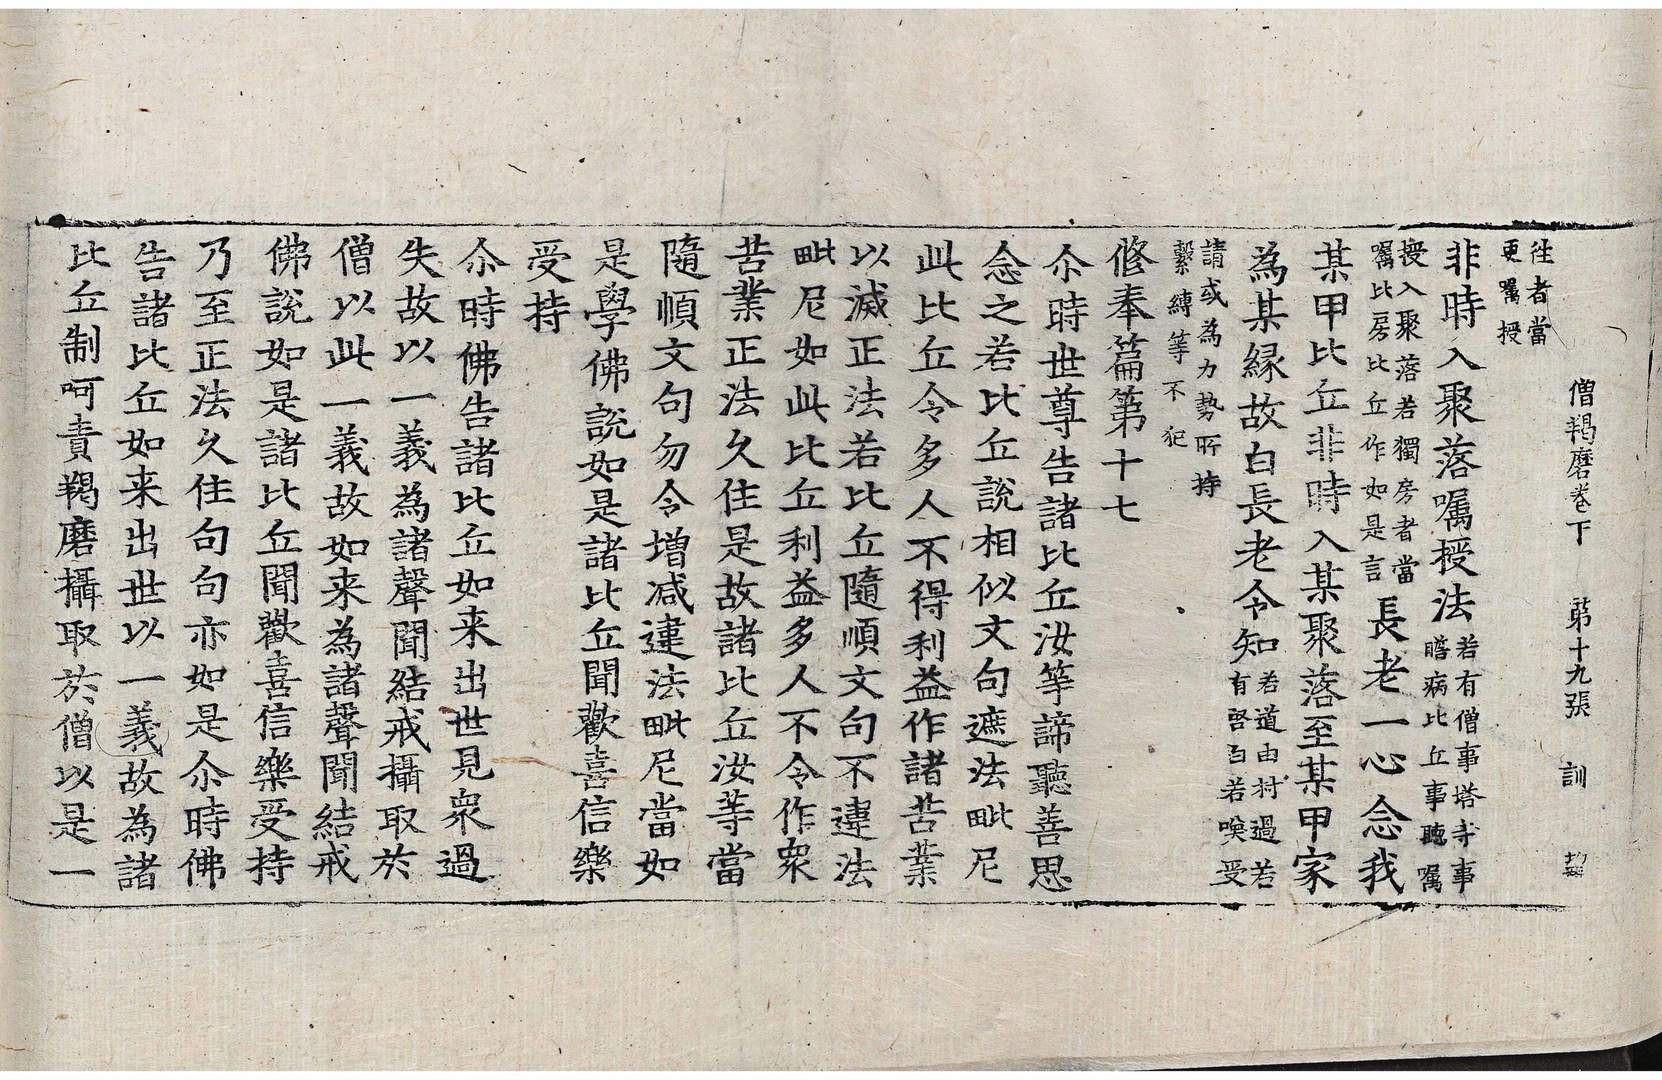 僧羯磨卷下　第十九張　訓
往者當
更囑授
非時入聚落囑授法若有僧事塔寺事
瞻病比丘事聽囑
授入聚落若獨房者當
囑比房比丘作如是言長老一心念我
某甲比丘非時入某聚落至某甲家
為某緣故白長老令知若道由村過若
有啓白若喚受
請或為力勢所持
繫縛等不犯
修奉篇第十七
尒時世尊告諸比丘汝等諦聽善思
念之若比丘說相似文句遮法毗尼
此比丘令多人不得利益作諸苦業
以滅正法若比丘隨順文句不違法
毗尼如此比丘利益多人不令作衆
苦業正法久住是故諸比丘汝等當
隨順文句勿令增減違法毗尼當如
是學佛說如是諸比丘聞歡喜信樂
受持
尒時佛告諸比丘如来出世見衆過
失故以一義為諸聲聞結戒攝取於
僧以此一義故如来為諸聲聞結戒
佛說如是諸比丘聞歡喜信樂受持
乃至正法久住句句亦如是尒時佛
告諸比丘如来出世以一義故為諸
比丘制呵責羯磨攝取於僧以是一